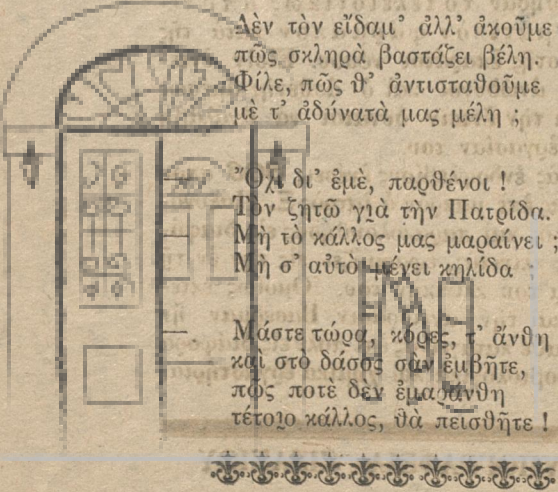 Δὲν τὸν εἴδαμ’ ἀλλ’ ἀκοῦμε
πῶς σκληρὰ βαστάζει βέλη.
Φίλε, πῶς θ’ ἀντισταθοῦμε
μὲ τ’ ἀδύνατὰ μας μέλη ;
Ὄχι δι’ ἐμὲ, παρθένοι !
Τὸν ζητῶ γιὰ τὴν Πατρίδα.
Μὴ τὸ κάλλος μας μαραίνει ;
Μὴ σ’ αὐτὸ μένει κηλίδα ;
Μάστε τώρα, κόρες, τ’ ἄνθη
καὶ στὸ δάσος σὰν ἐμβῆτε,
πῶς ποτὲ δὲν ἐμαράνθη
τέτοιο κάλλος, θὰ πεισθῆτε !